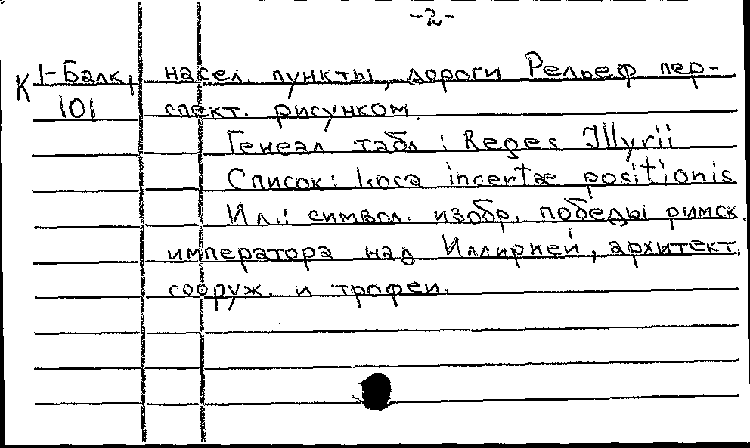 -2-
К 1-Балк, насел. пункты, дороги Рельеф пер-
101 спект. рисунком.
Генеал табл: Reges Illyrii
Список: Loca incertae positionis
Ил.: символ. изобр. победы римск.
императора над Иллирией, архитект.
сооруж. и трофеи.